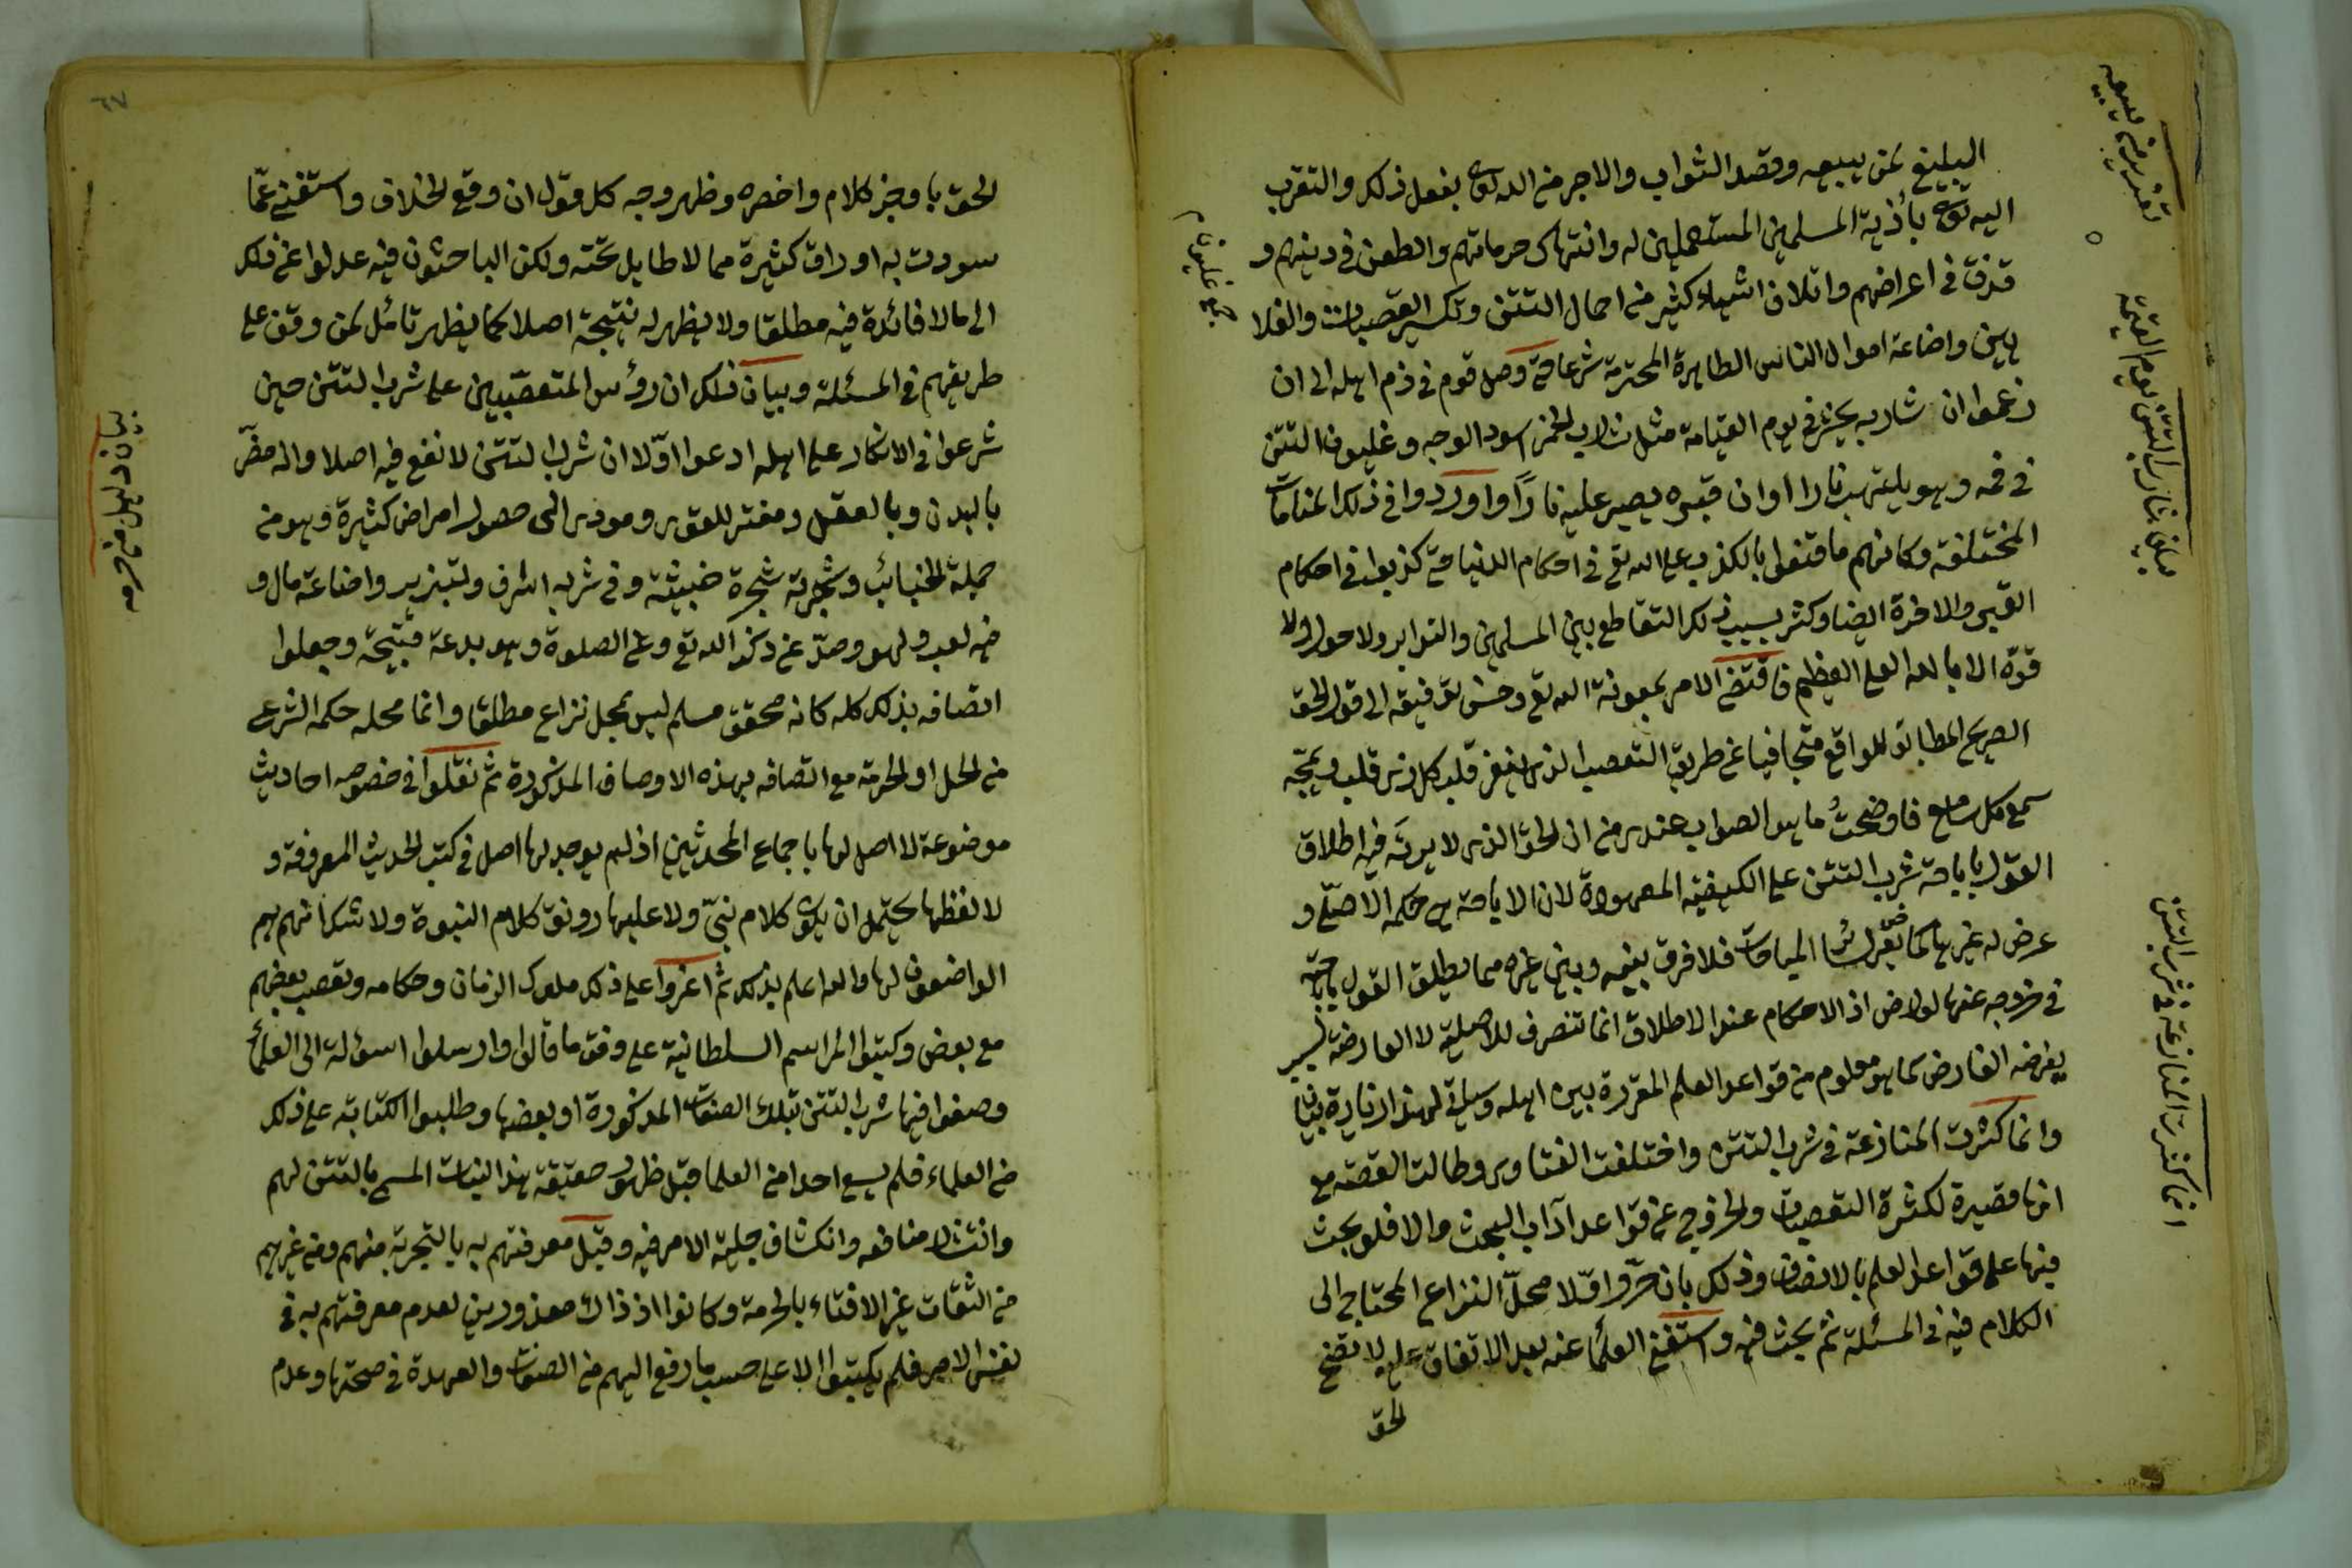 البليغ لمن يبيعه وقصد الثواب والاجر من الله تعالى بفعل ذلك والتقرب
اليه تعالى بأذية المسلمين المستعملين له وانتهاك حرماتهم والطعن في دينهم و
قذف في اعراضهم واتلاف اشياء كثير من احمال التتن وتكسير القصبات والغلا
يين واضاعة اموال الناس الطاهرة المحترمة شرعا حتى وصل قوم في ذم اهله الى ان
زعموا ان شاربه يحشر في يوم القيامة مثل شارب الخمر اسود الوجه وغليون التتن
في فمه وهو يلتهب نارا او ان قبره يصير عليه نارًا واوردوا في ذلك المنامات
المختلفة وكانهم ما قنعوا بالكذب على الله تع في احكام الدنيا حتى كذبوا في احكام
القبر والاخرة ايضا وكثر بسبب ذلك التقاطع بين المسلمين والتدابر ولا حول ولا
قوة الا بالله العلي العظيم فاقتضى الامر بمعونة الله تع وحسن توفيقه الى قول الحق
الصريح المطابق للواقع متجافيا عن طريق التعصب الذي ينفر قلب كل ذي قلب ويمجّه
سمع كل سامع فاوضحتُ ما هو الصواب عندي من ان الحق الذي لا يرتَد فيه اطلاق
القول باباحة شرب التتن على الكيفية المعهودة لان الاباحة هي حكمه الاصلي و
عرض له غيرها كما يعرض لسائر المباحات فلا فرق بينه وبين غيره مما يطلق القول باباحته
في خروجه عنها لعارض اذ الاحكام عند الاطلاق انما تنصرف للاصلية لا العارضة بسبب
يعرضه العارض كما هو معلوم من قواعد العلم المقررة بين اهله وسيأتي لهذا زيادة بيان
وانما كثرت المنازعة في شرب التتن واختلفت الفتاوى وطالت القصة مع
انها قصيرة لكثرة التعصبات والخروج عن قواعد آداب البحث والا فلو بحث
فيها على قواعد العلم بالانصاف وذلك بان حرّروا اوّلا محلّ النزاع المحتاج الى
الكلام فيه في المسئلة ثم بحث فيه واستغنى العلماء عنه بعد الاتفاق عليه لاتضح
الحق
تبليغ يغليون م
انما كثرت المنازعة في شرب التتن
٦٧
الحق باوجز كلام واخصره وظهر وجه كل قول ان وقع الخلاف واستغنى عمّا
سودت به اوراق كثيرة مما لا طايل تحته ولكن الباحثون فيه عدلوا عن ذلك
الى ما لا فائدة فيه مطلقا ولا يظهر له نتيجة اصلا كما يظهر تأمل لمن وقف على
طريقهم في المسئلة وبيان ذلك ان رؤس المتعصّبين على شرب التتن حين
شرعوا في الانكار على اهله ادعوا اوّلا ان شرب التتن لا نفع فيه اصلا وانه مضّر
بالبدن وبالعقل ومفتر للقوى ومؤدى الى حصول امراض كثيرة وهو من
جملة الخبائث وشجرته شجرة خبيثة وفي شربه اسرف وتبذير واضاعة مال و
فيه لعب ولهو وصدّ عن ذكر الله تع وعن الصلوة وهو بدعة قبيحة وجعلوا
اتصافه بذلك كله كانه محقق مسلم ليس بمحل نزاع مطلقا وانما محله حكمه الشرعي
من الحل او الحرمة مع اتصافه بهذه الاوصاف المذكورة ثم نقلوا في خصوصه احاديث
موضوعة لا اصل لها باجماع المحدثين اذ لم يوجد لها اصل في كتب الحديث المعروفة و
لا لفظها يحتمل ان يكون كلام نبيّ ولا عليها رونق كلام النبوة ولا شك انهم هم
الواضعون لها والله اعلم بذلك ثم اغروا على ذلك ملوك الزمان وحكامه وتعصب بعضهم
مع بعض وكتبوا المراسم السلطانية على وفق ما قالوا وارسلوا اسؤلة الى العلماء
وصفوا فيها شرب التتن بتلك الصفات المذكورة او بعضها وطلبوا الكتابة على ذلك
من العلماء فلم يسع احدا من العلما قبل ظهور حقيقة هذا النبات المسمى بالتتن لهم
وانتشار منافعه وانكشاف جلية الامر فيه وقبل معرفتهم به بالتجربة منهم ومن غيرهم
من الثقات غير الافتاء بالحرمة وكانوا اذ ذاك معذورين لعدم معرفتهم به في
نفس الامر فلم يكتبوا الا على حسب ما رفع اليهم من الصفات والعهدة في صحتها وعدم
بيان دليل من حرمه